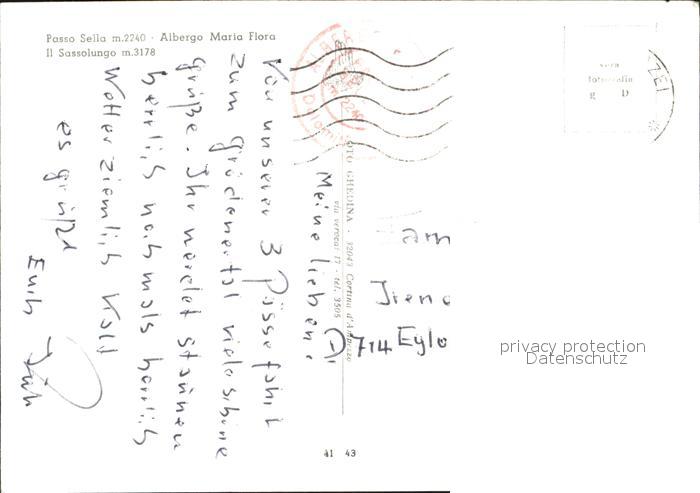 Passo Sella m.2240 - Albergo Maria Flora
Il Sassolungo m.3178
Meine lieben!
Von unserer 3 Pässefahrt
zum Grödenertal viele schöne
grüße. Ihr werdet staunen
herrlich nochmals herrlich
Wetter ziemlich kalt
es grüßt
Euch
FOTO GHEDINA - 32043 Cortina d'Ampezzo
via verocai 17 - tel. 3505
vera
fotografia
g D
714
privacy protection
Datenschutz
41 43